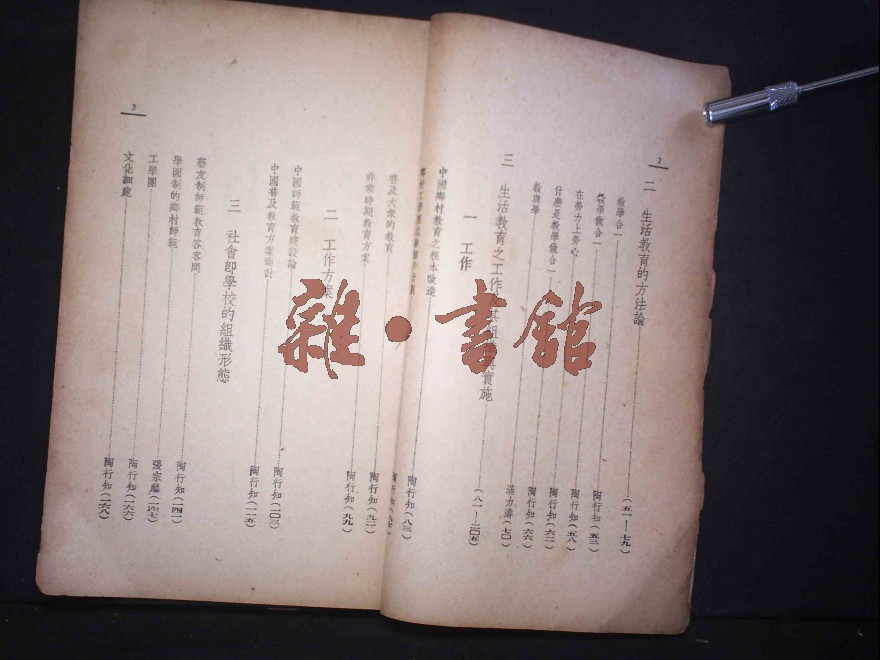 雜·書館
2
二 生活教育的方法論……(五一—七九)
教學合一……陶行知(五三)
教學做合一……陶行知(五八)
在勞力上勞心……陶行知(六二)
什麼是教學做合一……陶行知(六六)
教與學……力濤(七〇)
三 生活教育之工作及其組織與實施……(八一—二〇五)
一 工作
中國鄉村教育之根本改造……陶行知(八三)
鄉村工學團……陶行知
普及大衆的教育……陶行知(九二)
非常時期教育方案……陶行知(九九)
二 工作方案
中國師範教育建設論……陶行知(一〇三)
中國普及教育方案商討……陶行知(一一五)
三 社會即學校的組織形態
藝友制師範教育答客問……陶行知(一四一)
學園制的鄉村師範……張宗麟(一四七)
工學團……陶行知(一六六)
文化細胞……陶行知(一六八)
3